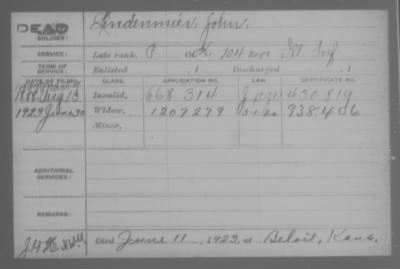 DEAD
NAME OF SOLDIER: Lindenmier, John.
SERVICE: Late rank, P. Co. K, 104 Regt Ill. Inf
TERM OF SERVICE: Enlisted , 1 Discharged , 1
DATE OF FILING. CLASS. APPLICATION NO. LAW. CERTIFICATE NO.
1888 Aug 13 Invalid, 668.314 430.819
1923 June 30 Widow, 1207279 938.406
Minor,
ADDITIONAL SERVICES:
REMARKS:
Died June 11, 1923, at Beloit, Kans.